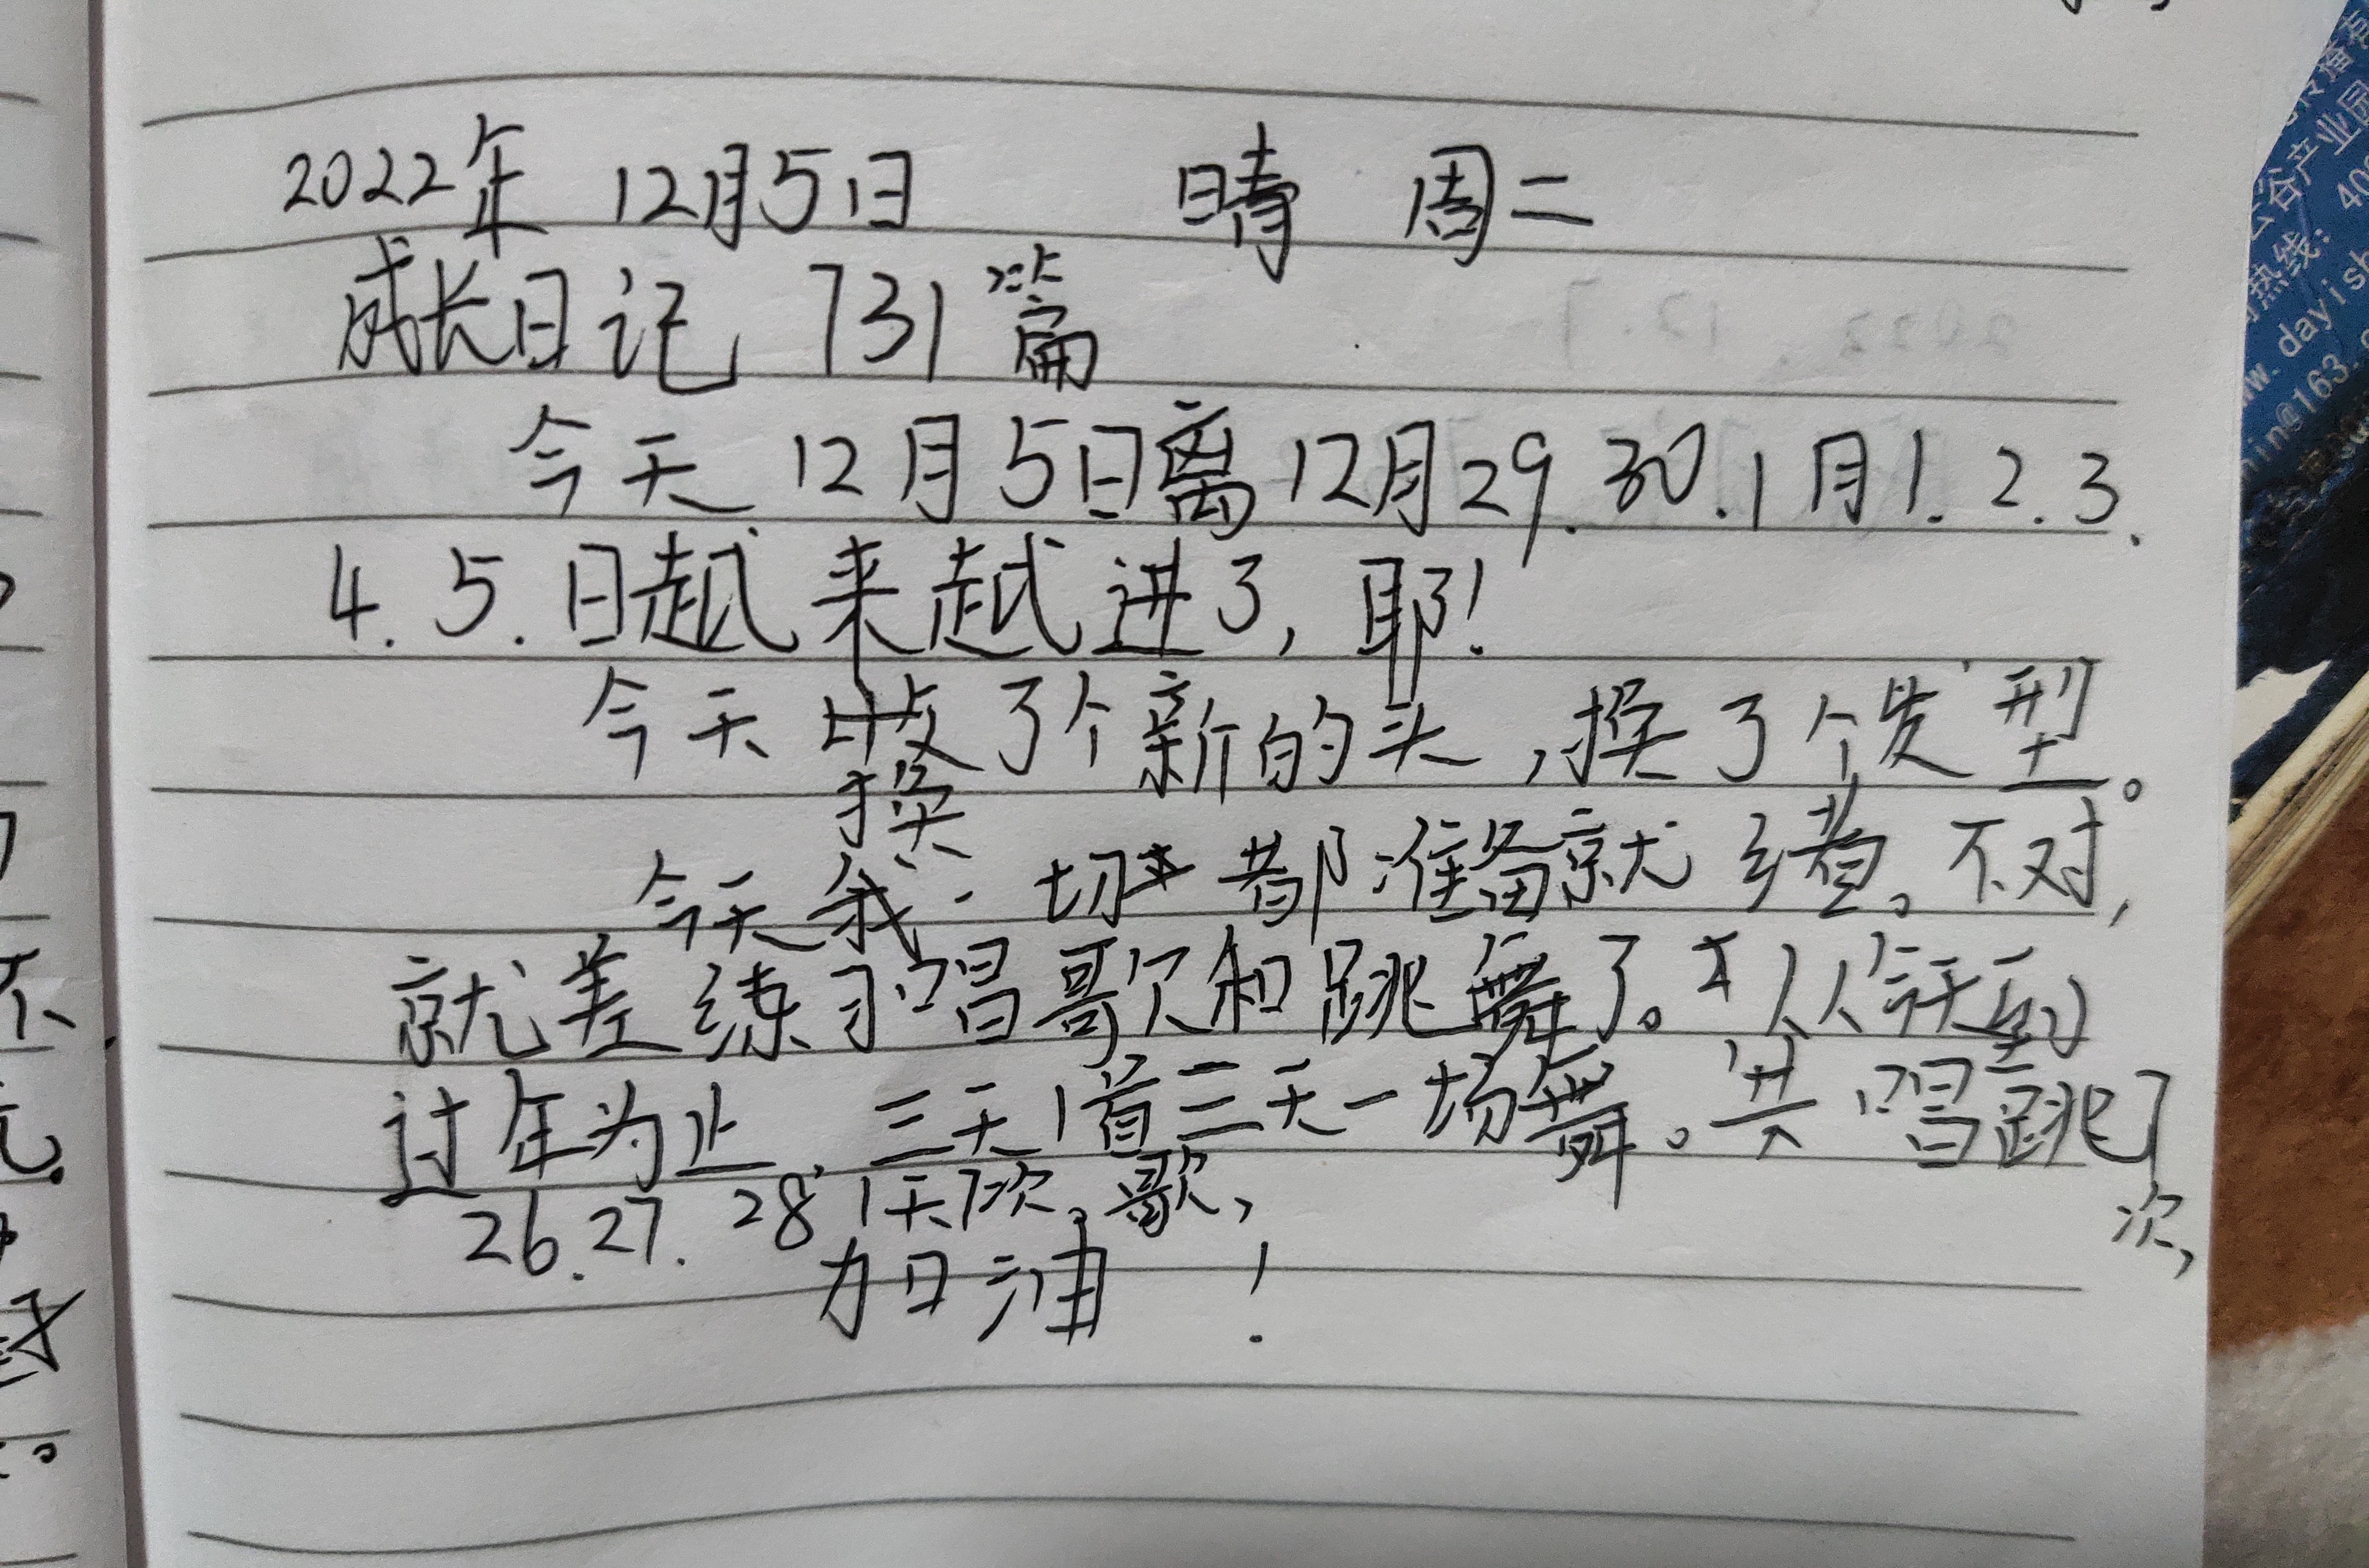 2022年 12月5日 晴 周二
成长日记 731篇
今天 12月5日离12月29.30.1月1.2.3.
4.5.日越来越进了,耶!
今天 了个新的头,换了个发型。
换
今天我一切 都准备就绪。不对,
就差练习唱歌和跳舞了。从今天到
过年为止,三天1首三天一场舞。共唱跳7
次,
26.27.28,1天7次。歌,
加油!
谷产业园
热线: 40
www.dayish
min@163.